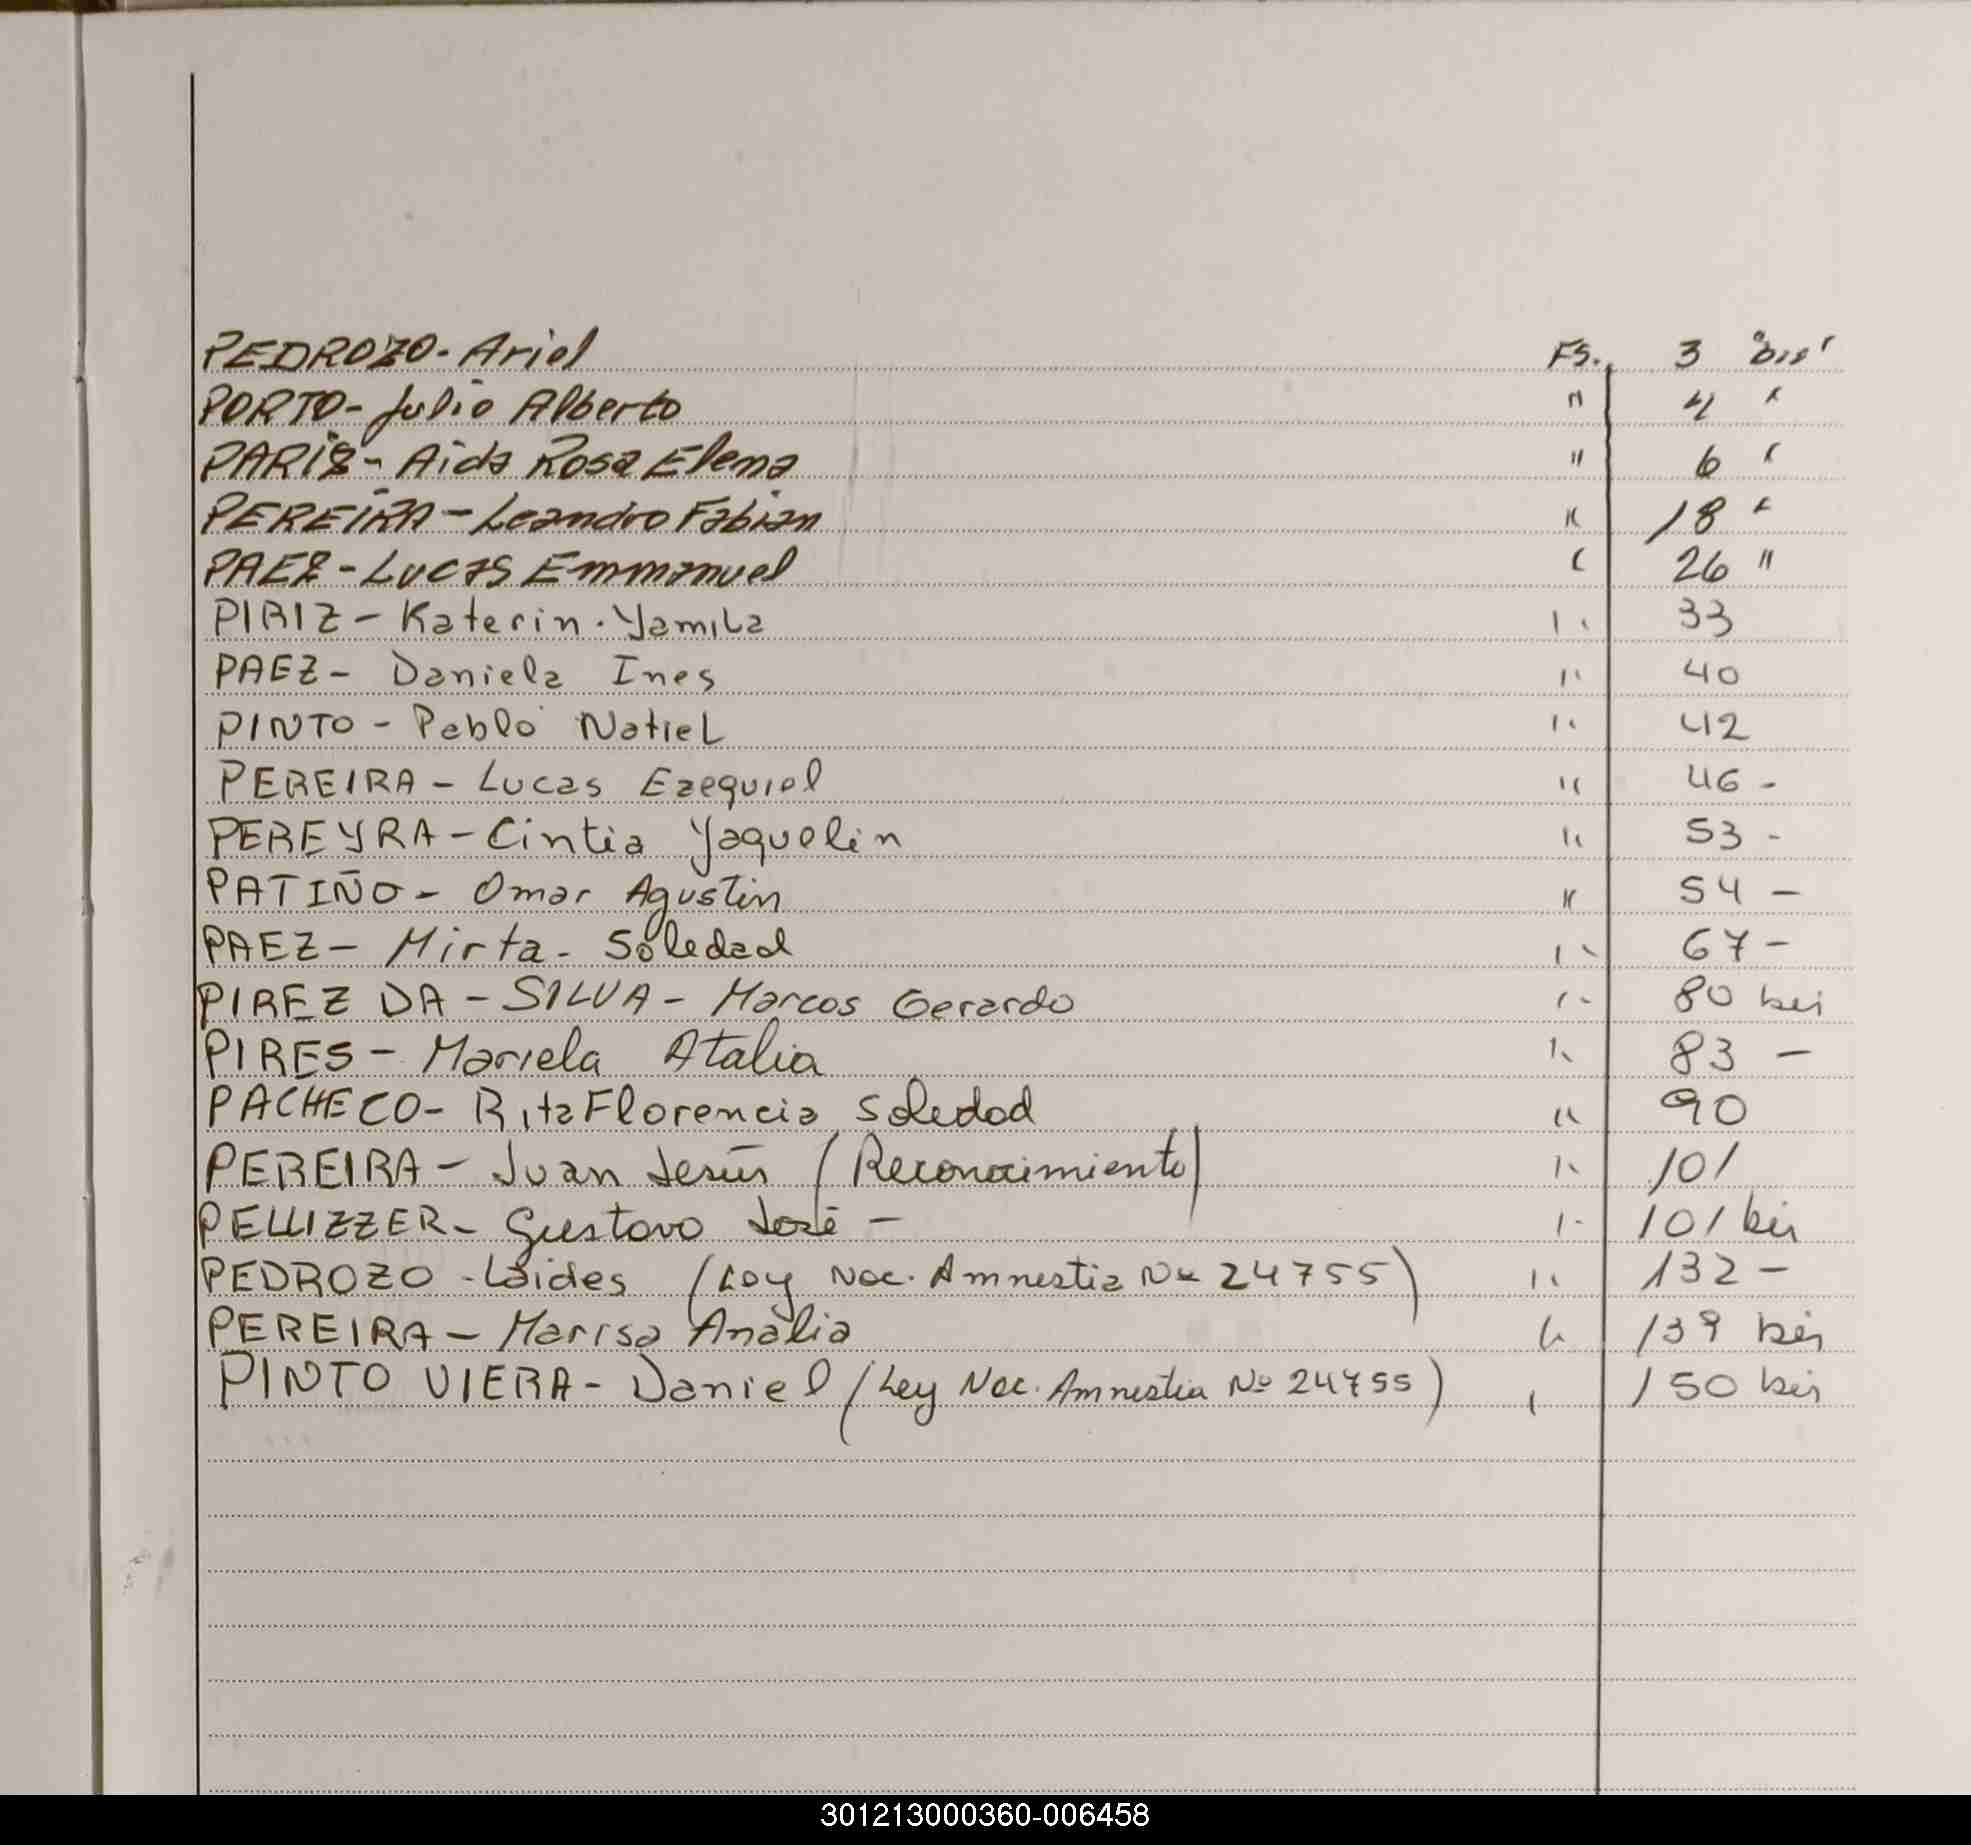 PEDROZO - Ariel Fs. 3 "bis"
PORTO - Julio Alberto " 4 "
PARIZ - Aida Rosa Elena " 6 "
PEREIRA - Leandro Fabian " 18 "
PAEZ - Lucas Emmanuel " 26 "
PIRIZ - Katerin Yamila " 33
PAEZ - Daniela Ines " 40
PINTO - Pablo Natiel " 42
PEREIRA - Lucas Ezequiel " 46 -
PEREYRA - Cintia Yaquelin " 53 -
PATIÑO - Omar Agustin " 54 -
PAEZ - Mirta - Soledad " 67 -
PIREZ DA - SILVA - Marcos Gerardo " 80 bis
PIRES - Mariela Atalia " 83 -
PACHECO - Rita Florencia Soledad " 90
PEREIRA - Juan Jesús (Reconocimiento) " 101
PELLIZZER - Gustavo José - " 101 bis
PEDROZO - Laides (Ley Nac. Amnestia Nº 24755) " 132 -
PEREIRA - Marisa Analia " 139 bis
PINTO VIERA - Daniel (Ley Nac. Amnestia Nº 24755) " 150 bis
301213000360-006458